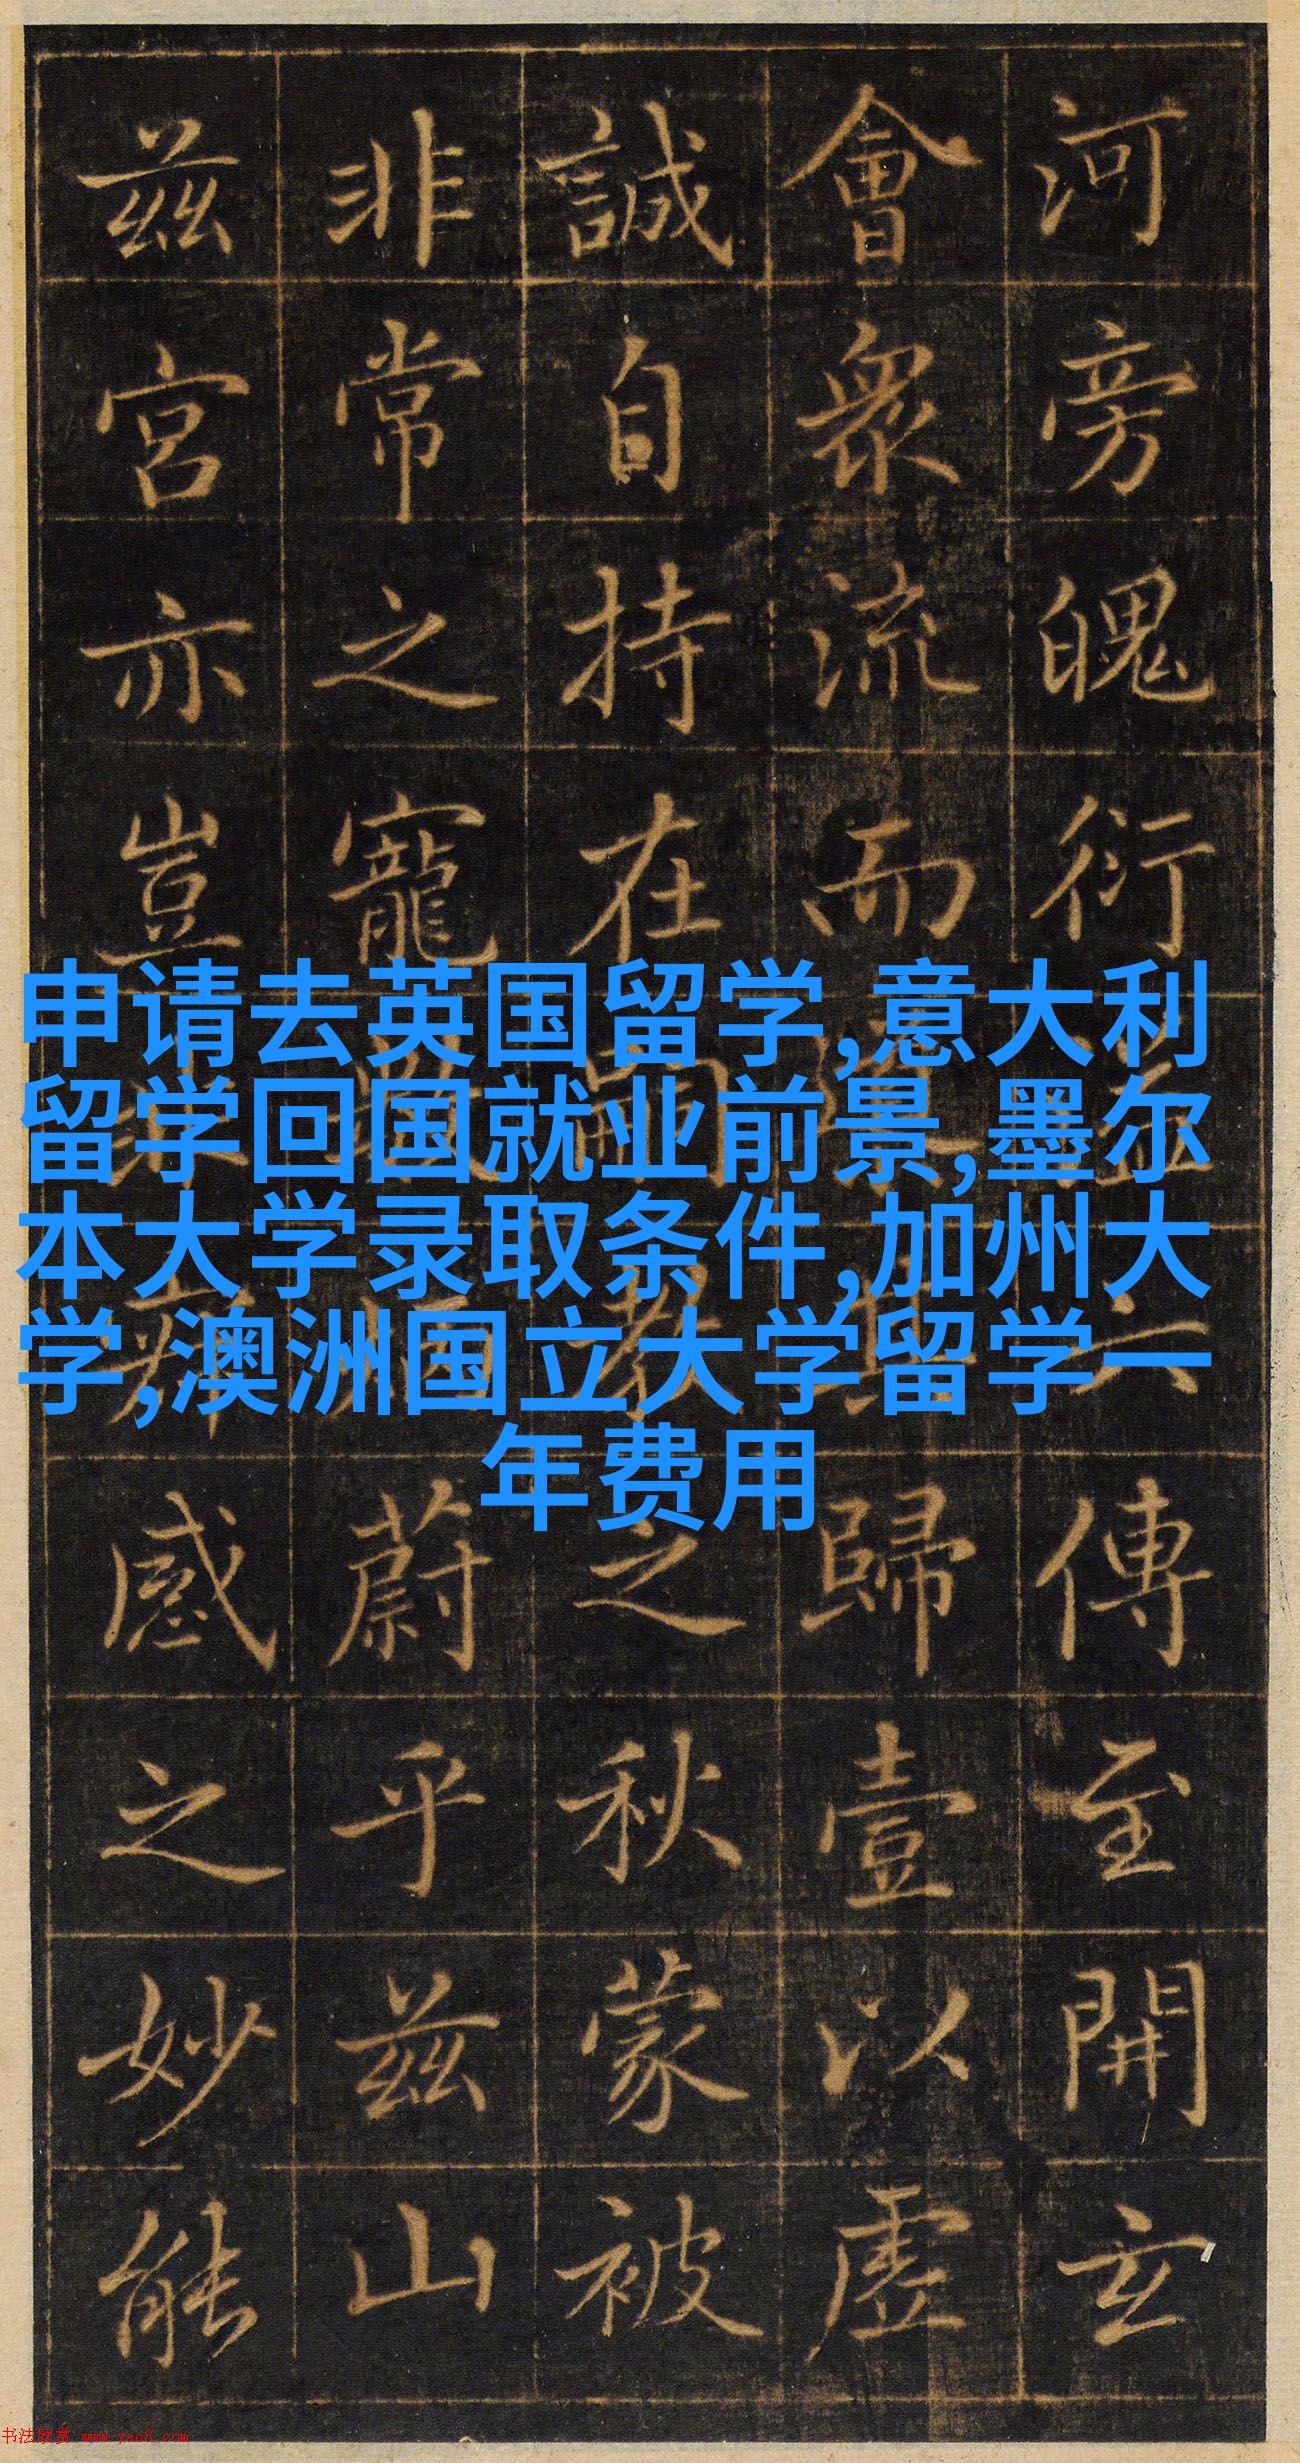 河旁魄衍傳至開玄
會衆流而歸壹以虛
誠自持在之秋蒙被
非常之寵蔚乎兹山
兹宮亦豈感之妙能
申请去英国留学,意大利
留学回国就业前景,墨尔
本大学录取条件,加州大
学,澳洲国立大学留学一
年费用
书法欣赏 www.yac8.com